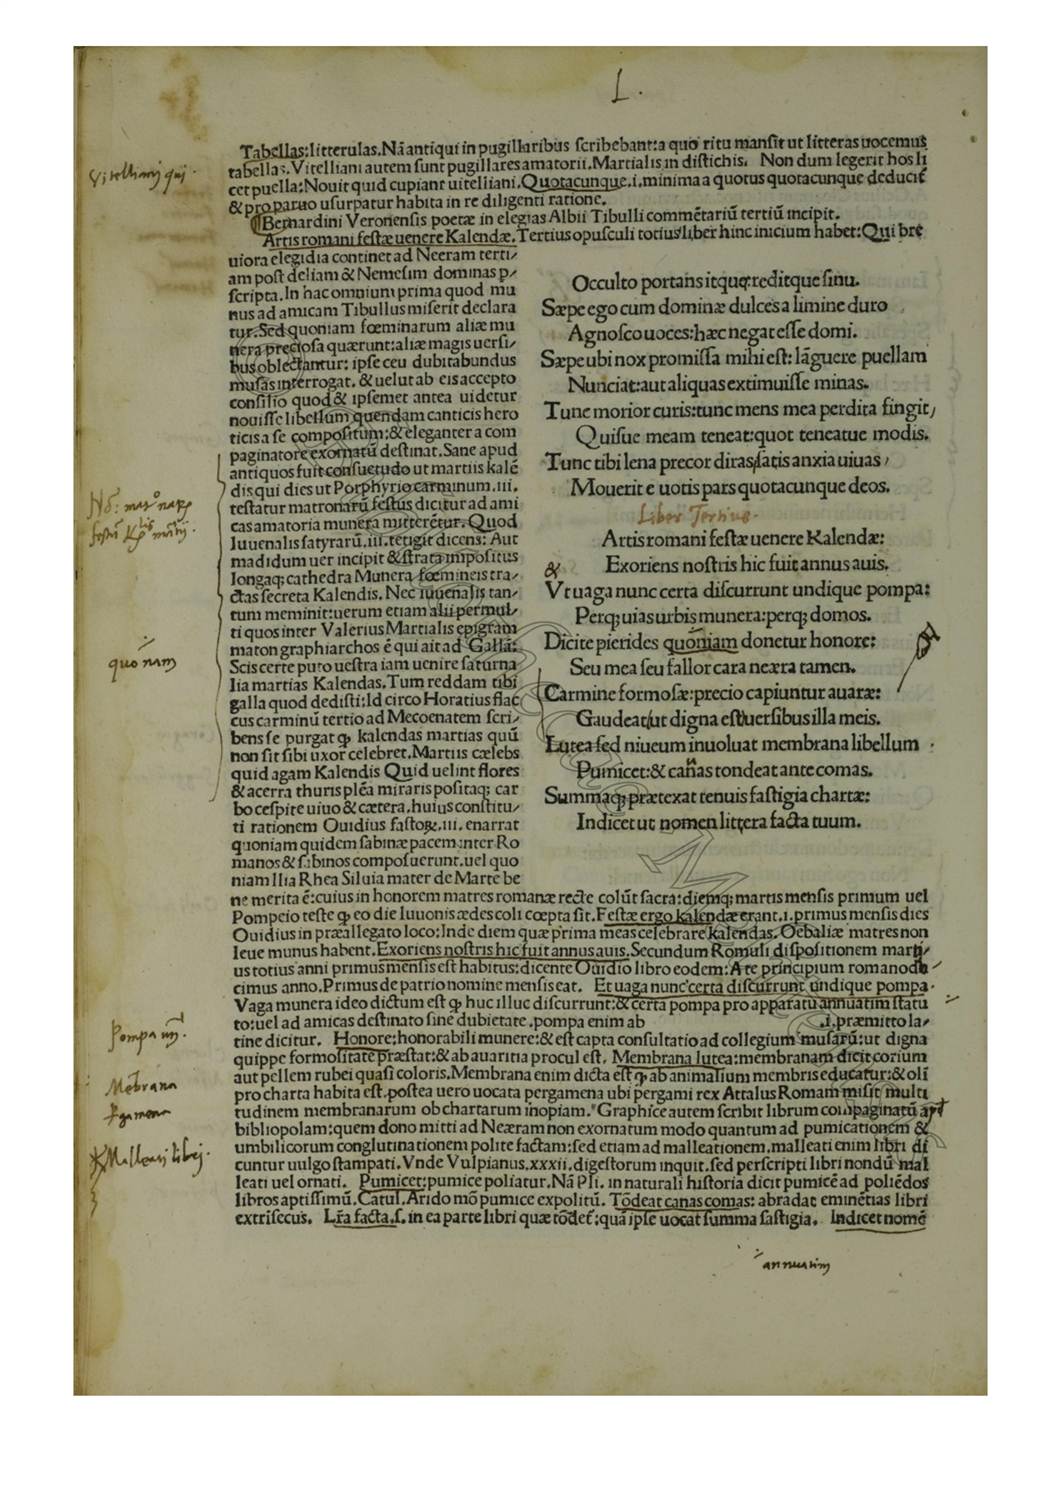 L.
Tabellas:litterulas.Nā antiqui in pugillaribus scribebant:a quo ritu mansit ut litteras uocemus
tabellas.Vitelliani autem sunt pugillares amatorii.Martialis in distichis. Non dum legerit hos li
cet puella:Nouit quid cupiant uitelliani.Quotacunque.i.minima a quotus quotacunque deducit̄
& pro paruo usurpatur habita in re diligenti ratione.
¶Bernardini Veronensis poetæ in elegias Albii Tibulli commētariū tertiū incipit.
Artis romani festæ uenere Kalendæ.Tertius opusculi totius liber hinc inicium habet:Qui bre
uiora elegidia continet ad Neeram terti/
am post deliam & Nemesim dominas p/
scripta.In hac omnium prima quod mu
nus ad amicam Tibullus miserit declara
tur.Sed quoniam fœminarum aliæ mu
nera preciosa quærunt:aliæ magis uersi/
bus oblectantur: ipse ceu dubitabundus
musas interrogat. & uelut ab eis accepto
consilio quod & ipsemet antea uidetur
nouisse libellum quendam canticis hero
ticis a se compositum:& eleganter a com
paginatore exornatū destinat.Sane apud
antiquos fuit consuetudo ut martiis kalē
dis qui dies ut Porphyrio carminum.iii.
testatur matronarū festus dicitur ad ami
cas amatoria munera mitterētur. Quod
Iuuenalis satyrarū.iii.tetigit dicens: Aut
madidum uer incipit & strata impositus
longaq; cathedra Munera fœmineis tra/
ctas secreta Kalendis. Nec iuuenalis tan/
tum meminit:uerum etiam alii permul/
ti quos inter Valerius Martialis epigram
maton graphiarchos ē qui ait ad Gallā:
Scis certe puto uestra iam uenire saturna
lia martias Kalendas.Tum reddam tibi
galla quod dedisti:Id circo Horatius flac
cus carminū tertio ad Mecoenatem scri/
bens se purgat ꝙ kalendas martias quū
non sit sibi uxor celebret.Martiis cælebs
quid agam Kalendis Quid uelint flores
& acerra thuris plēa miraris positaq; car
bo cespite uiuo & cætera.huius constitu/
ti rationem Ouidius fastoꝝ.iii.enarrat
quoniam quidem sabinæ pacem inter Ro
manos & sabinos composuerunt.uel quo
niam Ilia Rhea Siluia mater de Marte be
Occulto portans itque:reditque sinu.
Sæpe ego cum dominæ dulces a limine duro
Agnosco uoces:hæc negat esse domi.
Sæpe ubi nox promissa mihi est: lāguere puellam
Nunciat:aut aliquas extimuisse minas.
Tunc morior curis:tunc mens mea perdita fingit/
Quisue meam teneat:quot teneatue modis.
Tunc tibi lena precor diras/satis anxia uiuas/
Mouerit e uotis pars quotacunque deos.
Liber Tertius.
Artis romani festæ uenere Kalendæ:
& Exoriens nostris hic fuit annus auis.
Vt uaga nunc certa discurrunt undique pompa:
Perq; uias urbis munera:perq; domos.
Dicite pierides quoniam donetur honore:
Seu mea seu fallor cara neæra tamen.
Carmine formosæ:precio capiuntur auaræ:
Gaudeat/ut digna est/uersibus illa meis.
Lutea sed niueum inuoluat membrana libellum
Pumicet:& canas tondeat ante comas.
Summaq; prætexat tenuis fastigia chartæ:
Indicet ut nomen littera facta tuum.
ne merita ē:cuius in honorem matres romanæ recte colūt sacra:diemq; martis mensis primum uel
Pompeio teste ꝙ eo die Iuuonis ædes coli cœpta sit.Festæ ergo kalendæ erant.i.primus mensis dies
Ouidius in præallegato loco:Inde diem quæ prima meas celebrare kalendas.Oebaliæ matres non
leue munus habent.Exoriens nostris hic fuit annus auis.Secundum Romuli dispositionem marti/
us totius anni primus mensis est habitus:dicente Ouidio libro eodem:A te principium romano du/
cimus anno.Primus de patrio nomine mensis eat. Et uaga nunc certa discurrunt undique pompa.
Vaga munera ideo dictum est ꝙ huc illuc discurrunt:& certa pompa pro apparatu annuatim statu
to:uel ad amicas destinato sine dubietate.pompa enim ab .i.præmitto la/
tine dicitur. Honore:honorabili munere:& est capta consultatio ad collegium musarū:ut digna
quippe formositate præstat:& ab auaritia procul est. Membrana lutea:membranam dicit corium
aut pellem rubei quasi coloris.Membrana enim dicta est ꝙ ab animalium membris educatur:& oli
pro charta habita est.postea uero uocata pergamena ubi pergami rex Attalus Romam misit multi
tudinem membranarum ob chartarum inopiam.Graphice autem scribit librum compaginatū apt
bibliopolam:quem dono mitti ad Neæram non exornatum modo quantum ad pumicationem &
umbilicorum conglutinationem polite factam:sed etiam ad malleationem.malleati enim libri di
cuntur uulgo stampati.Vnde Vulpianus.xxxii.digestorum inquit.sed perscripti libri nondū mal
leati uel ornati. Pumicet:pumice poliatur.Nā Pli. in naturali historia dicit pumicē ad poliēdos
libros aptissimū.Catul.Arido mō pumice expolitū. Tōdeat canas comas: abradat eminētias libri
extrisecus. Lr̄a facta.s.in ea parte libri quæ tōdet̄:quā ipse uocat summa fastigia. Indicet nomē
quonam
Membrana
Malleati libri.
annuatim